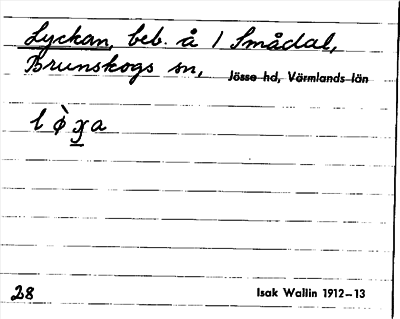 Lyckan, beb. å 1 Smådal,
Brunskogs sn, Jösse hd, Värmlands län
28 Isak Wallin 1912–13